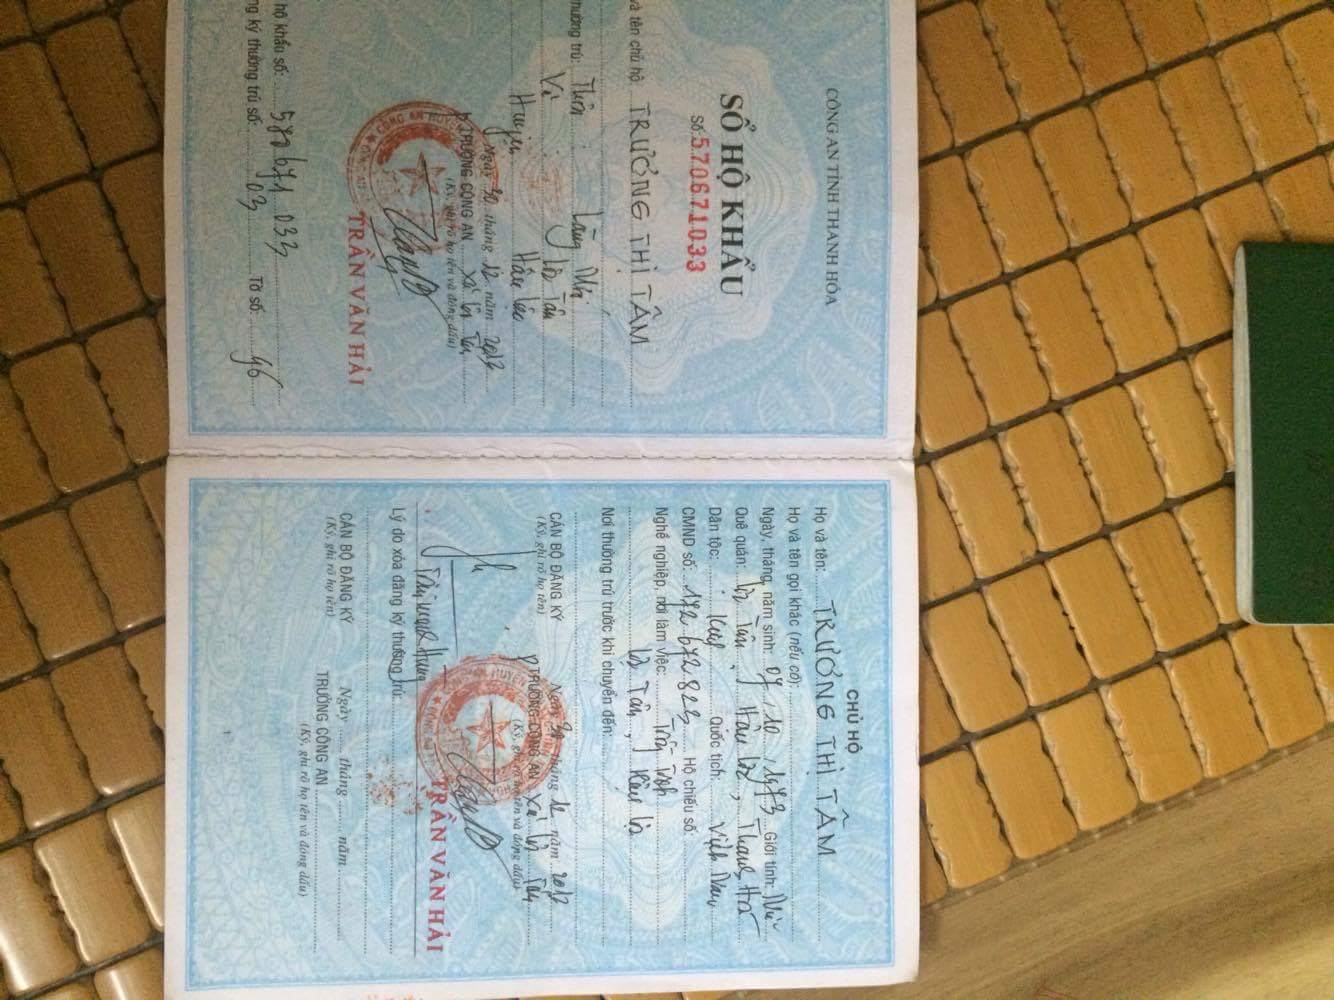 CÔNG AN TỈNH THANH HÓA
SỔ HỘ KHẨU
Số: 570671033
và tên chủ hộ: TRƯƠNG THỊ TÂM
thường trú: Thôn: Làng Nhi
Xã: Lộc Tân
Huyện Hậu Lộc
Ngày 30 tháng 12 năm 2012
TRƯỞNG CÔNG AN xã Lộc Tân
(Ký, ghi rõ họ tên và đóng dấu)
CÔNG AN HUYỆN
TRẦN VĂN HẢI
hộ khẩu số: 582 671 033
ng ký thường trú số: 03 Tờ số: 46
CHỦ HỘ
Họ và tên: TRƯƠNG THỊ TÂM
Họ và tên gọi khác (nếu có):
Ngày, tháng, năm sinh: 07, 10, 1973 Giới tính: Nữ
Quê quán: Lộc Tân, Hậu Lộc, Thanh Hoá
Dân tộc: Kinh Quốc tịch: Việt Nam
CMND số: 172 672 823 Hộ chiếu số:
Nghề nghiệp, nơi làm việc:
Lộc Tân, Hậu Lộc
Nơi thường trú trước khi chuyển đến:
Ngày 30 tháng 12 năm 2012
CÁN BỘ ĐĂNG KÝ TRƯỞNG CÔNG AN xã Lộc Tân
(Ký, ghi rõ họ tên) (Ký, ghi rõ họ tên và đóng dấu)
TRẦN VĂN HẢI
Lý do xóa đăng ký thường trú:
Ngày tháng năm
CÁN BỘ ĐĂNG KÝ TRƯỞNG CÔNG AN
(Ký, ghi rõ họ tên) (Ký, ghi rõ họ tên và đóng dấu)
1